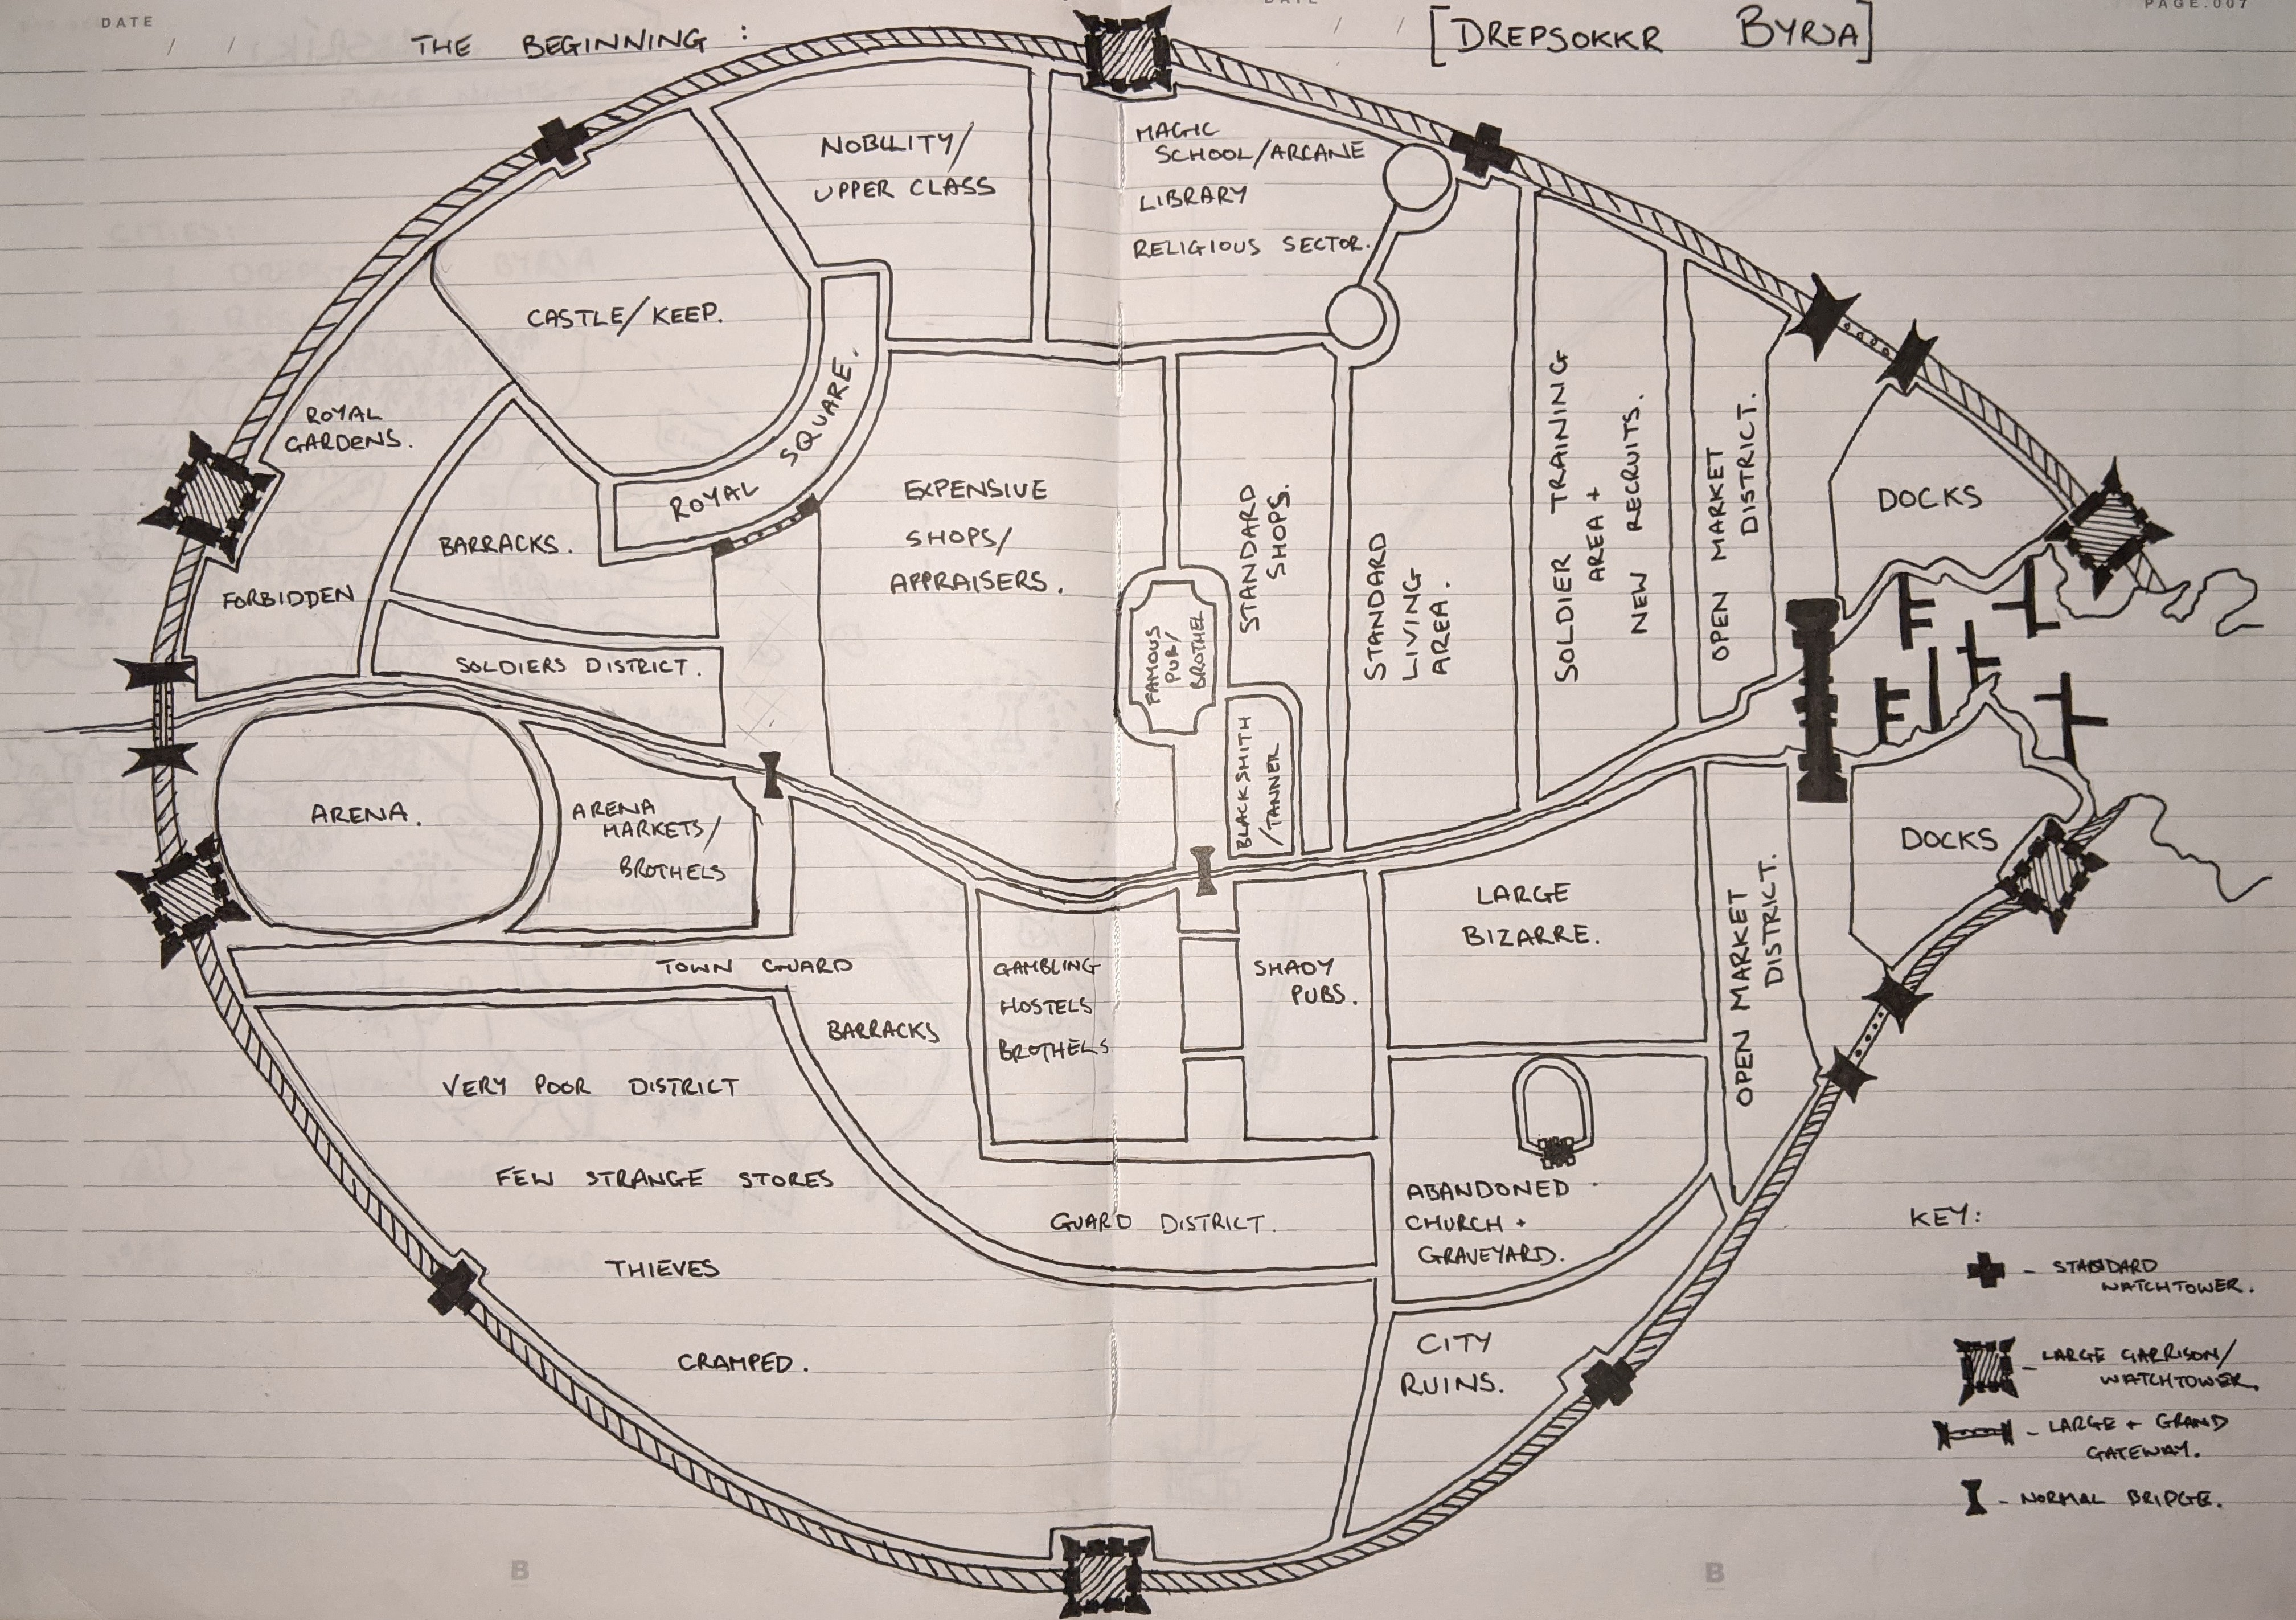 DATE
/ /
THE BEGINNING :
DATE
/ /
[DREPSOKKR BYRJA]
PAGE.007
NOBILITY/
UPPER CLASS
MAGIC
SCHOOL/ARCANE
LIBRARY
RELIGIOUS SECTOR.
CASTLE/KEEP.
ROYAL
GARDENS.
ROYAL SQUARE.
EXPENSIVE
SHOPS/
APPRAISERS.
STANDARD
SHOPS.
STANDARD
LIVING
AREA.
SOLDIER TRAINING
AREA +
NEW RECRUITS.
OPEN MARKET
DISTRICT.
DOCKS
BARRACKS.
FORBIDDEN
SOLDIERS DISTRICT.
FAMOUS
PUB/
BROTHEL
BLACKSMITH
/TANNER
ARENA.
ARENA
MARKETS/
BROTHELS
DOCKS
LARGE
BIZARRE.
OPEN MARKET
DISTRICT.
TOWN GUARD
BARRACKS
GAMBLING
HOSTELS
BROTHELS
SHADY
PUBS.
VERY POOR DISTRICT
FEW STRANGE STORES
THIEVES
CRAMPED.
GUARD DISTRICT.
ABANDONED
CHURCH +
GRAVEYARD.
CITY
RUINS.
KEY:
- STANDARD
WATCHTOWER.
- LARGE GARRISON/
WATCHTOWER.
- LARGE + GRAND
GATEWAY.
- NORMAL BRIDGE.
B
B